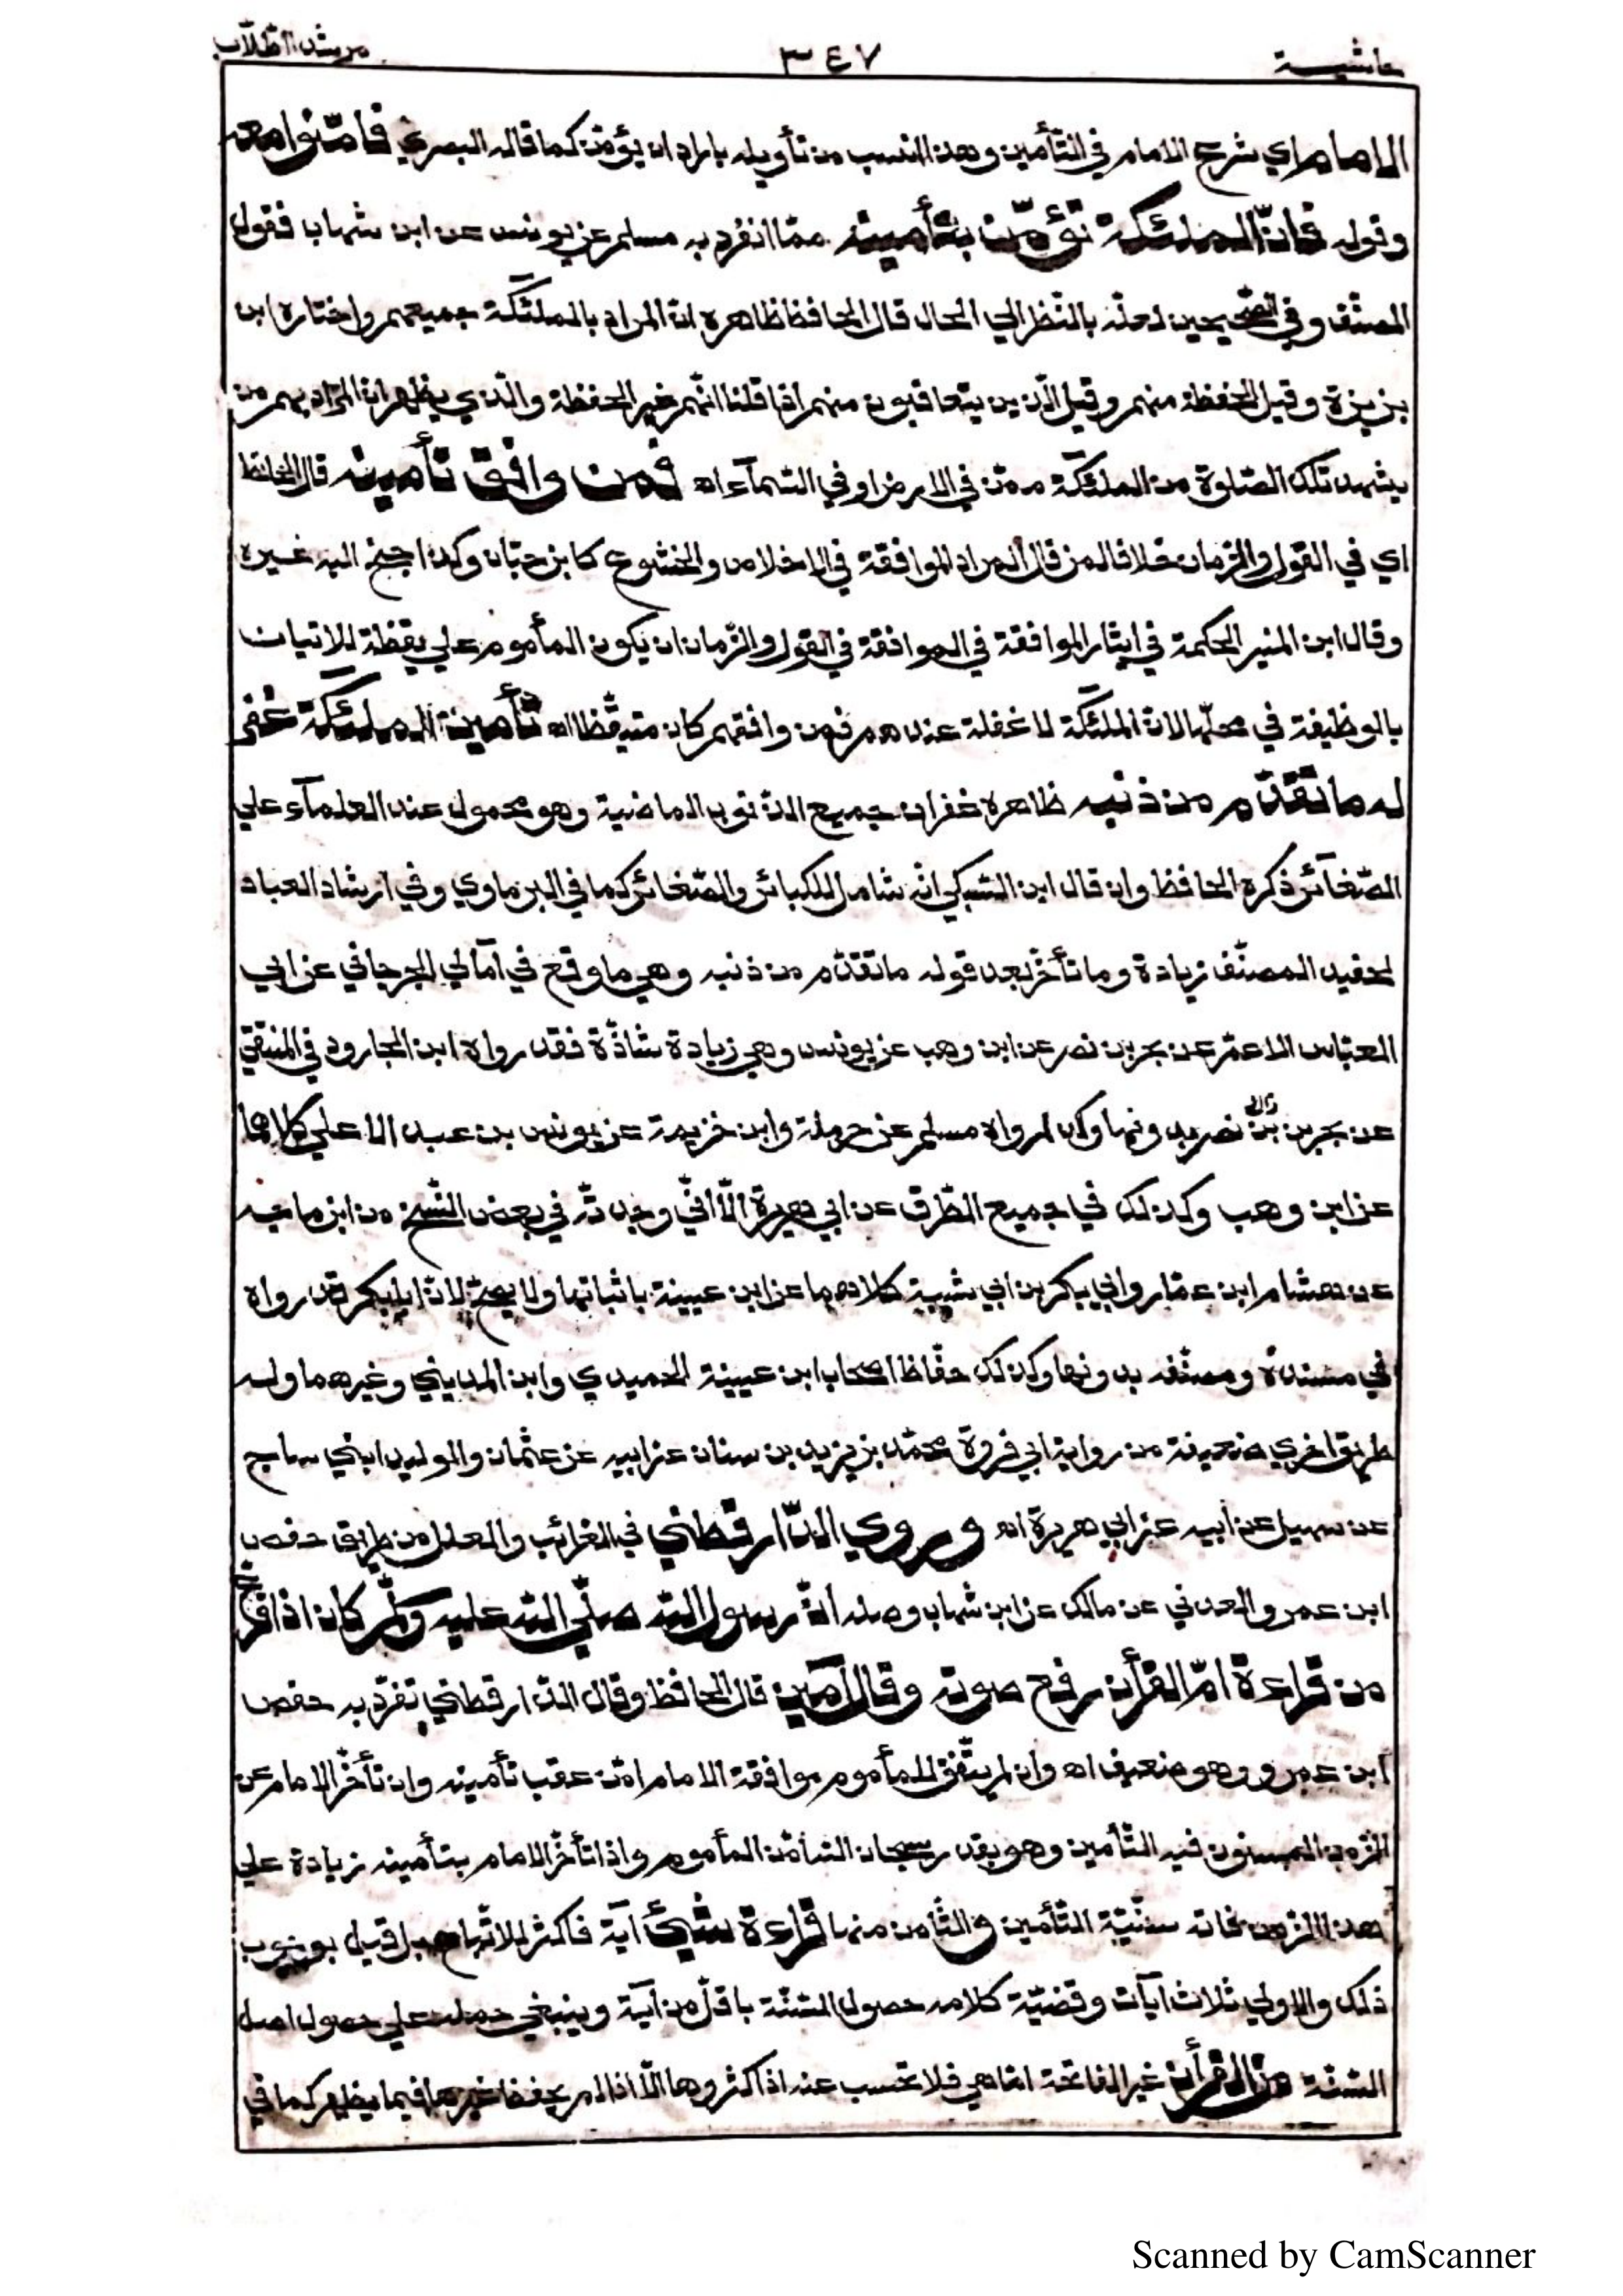 حاشية ٣٤٧ مرشد الطلّاب
الإمام اي شرع الامام في التّأمين وهذا انسب من تأويله باراد ان يؤمّن كما قاله البصري فامّنوا معه
وقوله فانّ الملئكة تؤمّن بتأمينه ممّا انفرد به مسلم عن يونس عن ابن شهاب فقول
المصنّف وفي الصّحيحين لعلّه بالنّظر الي الحال قال الحافظ ظاهره انّ المراد بالملئكة جميعهم واختاره ابن
بزيزة وقيل الحفظة منهم وقيل الّذين يتعاقبون منهم اذا قلنا انّهم غير الحفظة والّذي يظهر انّ المراد بهم من
يشهد تلك الصّلوة من الملئكة ممّن في الارض او في السّمآء اه فمن وافق تأمينه قال الحافظ
اي في القول والزّمان خلافا لمن قال المراد الموافقة في الاخلاص والخشوع كابن حبّان وكذا جنح اليه غيره
وقال ابن المنير الحكمة في ايثار الموافقة في القول والزّمان ان يكون المأموم علي يقظة للاتيان
بالوظيفة في محلّها لانّ الملئكة لا غفلة عندهم فمن وافقهم كان متيقّظا اه تأمين الملئكة غفر
له ما تقدّم من ذنبه ظاهره غفران جميع الذّنوب الماضية وهو محمول عند العلمآء علي
الصّغآئر ذكره الحافظ وان قال ابن السّبكي انّه شامل للكبائر والصّغائر كما في البرماوي وفي ارشاد العباد
لحفيد المصنّف زيادة وما تأخّر بعد قوله ما تقدّم من ذنبه وهي ما وقع في آمالي الجرجاني عن ابي
العبّاس الاعمّ عن بحر بن نصر عن ابن وهب عن يونس وهي زيادة شاذّة فقد رواه ابن الجارود في المنتقي
عن بحر بن نصر بدونها وكذا رواه مسلم عن حرملة وابن خزيمة عن يونس بن عبد الاعلي كلاهما
عن ابن وهب وكذلك في جميع الطّرق عن ابي هريرة الّا انّي وجدتّه في بعض النّسخ من ابن ماجه
عن هشام ابن عمّار وابي بكر بن ابي شيبة كلاهما عن ابن عيينة باثباتها ولا يصحّ لانّ ابا بكر قد رواه
في مسنده ومصنّفه بدونها وكذلك حفّاظ اصحاب ابن عيينة الحميدي وابن المديني وغيرهما وله
طريق اخري ضعيفة من رواية ابي فروة محمّد بن يزيد بن سنان عن ابيه عن عثمان والوليد ابني ساج
عن سهيل عن أبيه عن ابي هريرة اه وروي الدّارقطني في الغرائب والعلل من طريق حفص
ابن عمرو العدني عن مالك عن ابن شهاب وصله انّ رسول اللّه صلّي اللّه عليه وسلّم كان اذا فرغ
من قراءة امّ القرأن رفع صوته وقال آمين قال الحافظ وقال الدّارقطني تفرّد به حفص
ابن عمرو وهو ضعيف اه وان لم يتّفق للمأموم موافقة الامام امّن عقب تأمينه وان تأخّر الامام عن
الزّمن المسنون فيه التّأمين وهو بقدر سبحان اللّه امّن المأموم واذا تأخّر الامام بتأمينه زيادة علي
هذا الزّمن فاته سنّيّة التّأمين والثّامن منها قراءة شيئ آية فاكثر للاتّباع بل قيل بوجوب
ذلك والاولي ثلاث آيات وقضيّة كلامه حصول السّنّة باقلّ من آية وينبغي حمله علي حصول اصل
السّنّة من القرأن غير الفاتحة امّا هي فلا تحسب عنه اذا كرّروها الّا اذا لم يحفظ غيرها فيما يظهر كما في
Scanned by CamScanner